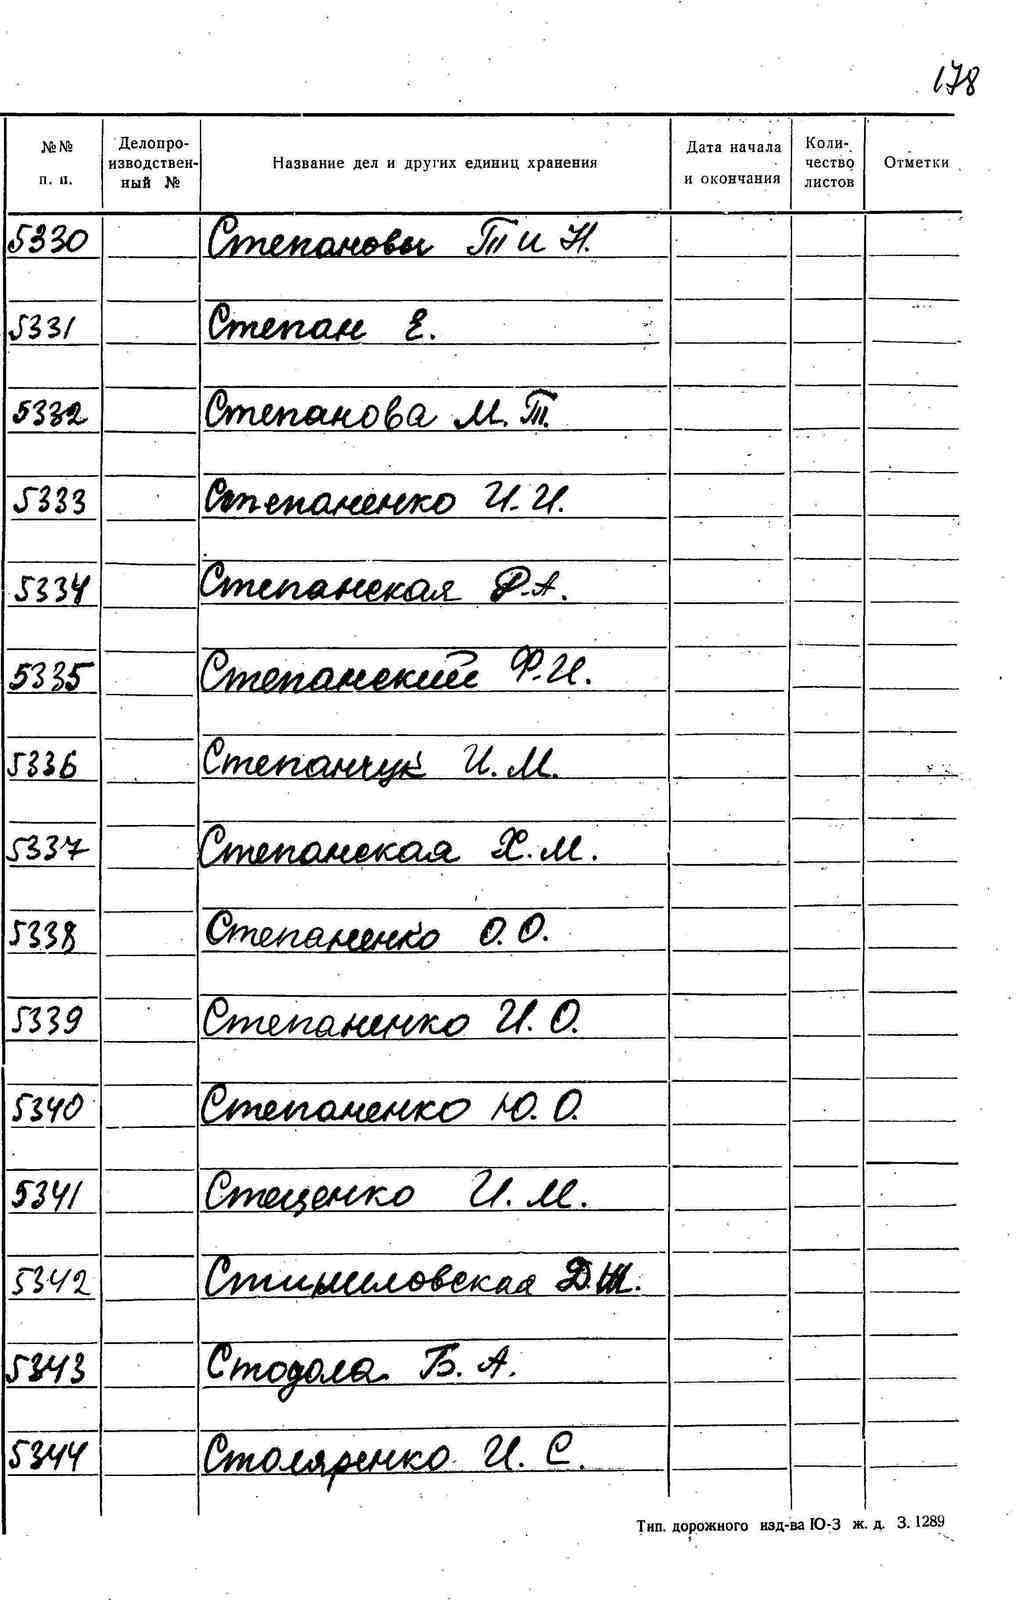 178
№№ п. п.
Делопро-
изводствен-
ный №
Название дел и других единиц хранения
Дата начала
и окончания
Коли-
чество
листов
Отметки
5330 Степановы Т и Н.
5331 Степан Е.
5332 Степанова М. Т.
5333 Степаненко И. И.
5334 Степанская Р. А.
5335 Степанский Ф. И.
5336 Степанчук И. М.
5337 Степанская Х. М.
5338 Степаненко О. О.
5339 Степаненко И. О.
5340 Степаненко Ю. О.
5341 Стеценко И. М.
5342 Д.
5343 Стодола Б. А.
5344 Столяренко И. С.
Тип. дорожного изд-ва Ю-З ж. д. З. 1289